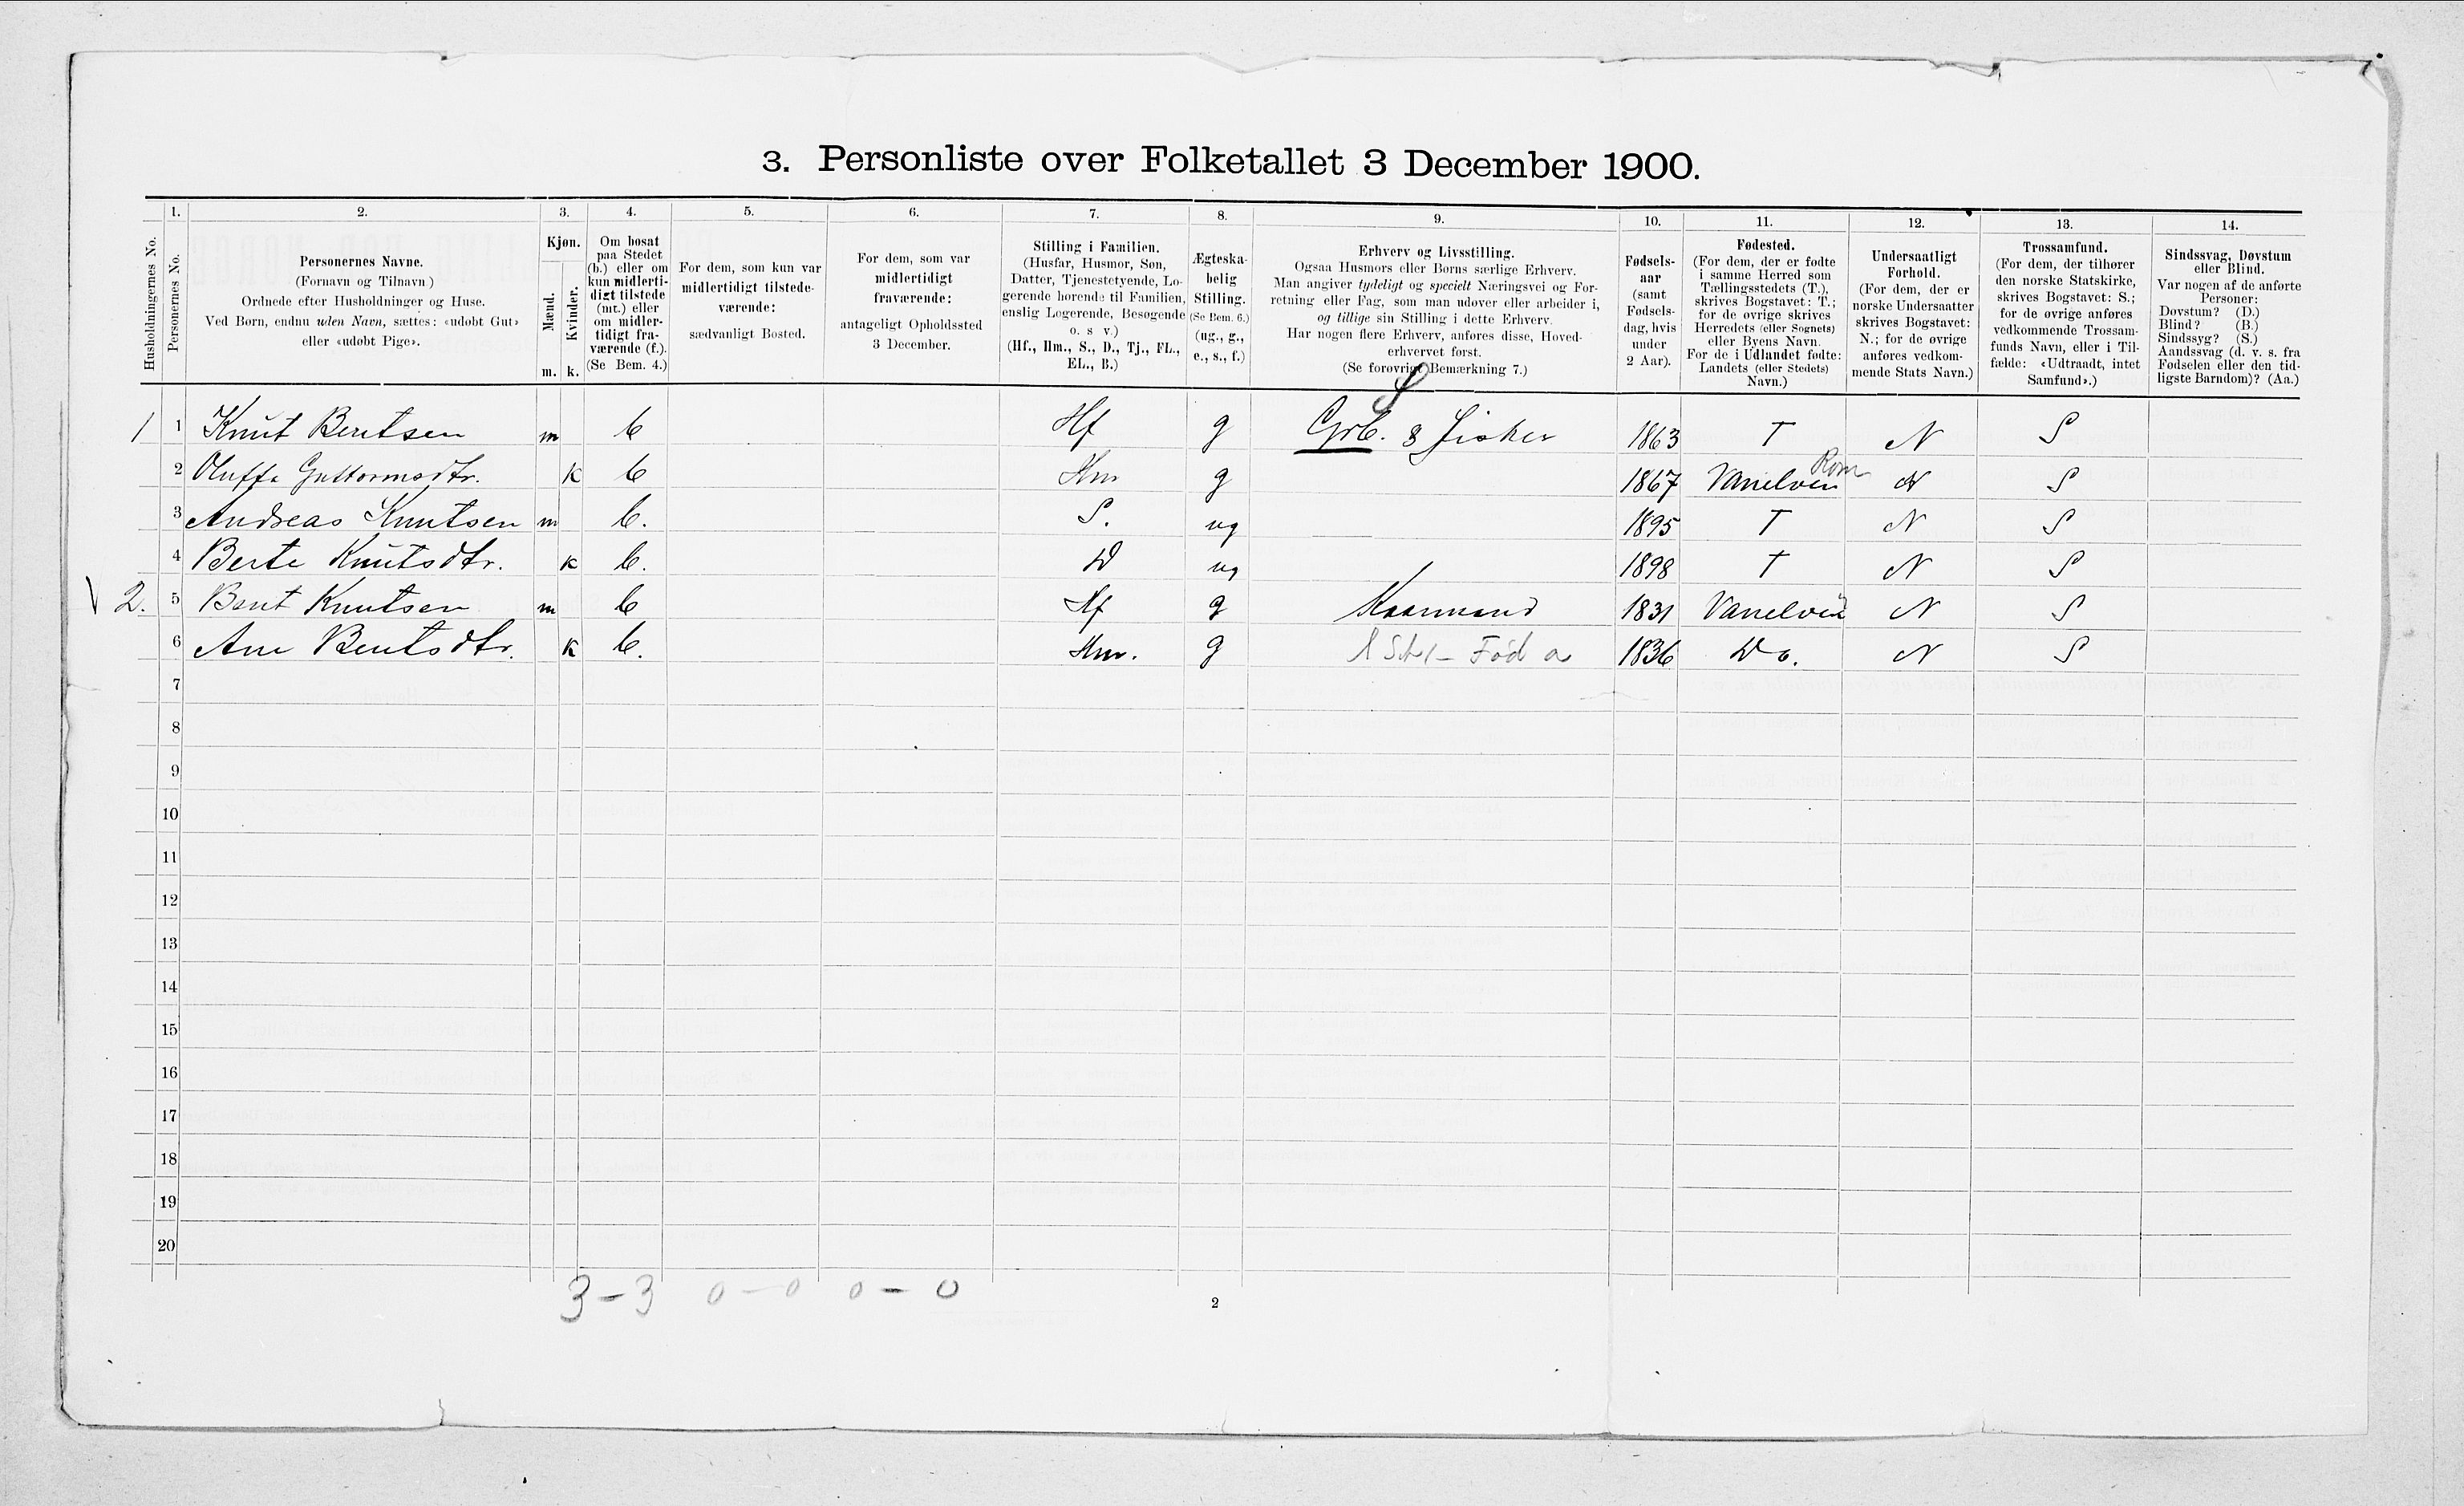 3. Personliste over Folketallet 3 December 1900.
Husholdningernes No.
1. Personernes No.
2. Personernes Navne.
(Fornavn og Tilnavn)
Ordnede efter Husholdninger og Huse.
Ved Børn, endnu uden Navn, sættes: «udøbt Gut»
eller «udøbt Pige».
3. Kjøn.
Mænd. Kvinder.
m. k.
4. Om bosat
paa Stedet
(b.) eller om
kun midlerti-
digt tilstede
(mt.) eller
om midler-
tidigt fra-
værende (f.).
(Se Bem. 4.)
5. For dem, som kun var
midlertidigt tilstede-
værende:
sædvanligt Bosted.
6. For dem, som var
midlertidigt
fraværende:
antageligt Opholdssted
3 December.
7. Stilling i Familien.
(Husfar, Husmor, Søn,
Datter, Tjenestetyende, Lo-
gerende hørende til Familien,
enslig Logerende, Besøgende
o. s v.)
(Hf., Hm., S., D., Tj., FL.,
EL., B.)
8. Ægteska-
belig
Stilling.
(Se Bem. 6.)
(ug., g.,
e., s., f.)
9. Erhverv og Livsstilling.
Ogsaa Husmors eller Børns særlige Erhverv.
Man angiver tydeligt og specielt Næringsvei og For-
retning eller Fag, som man udøver eller arbeider i,
og tillige sin Stilling i dette Erhverv.
Har nogen flere Erhverv, anføres disse, Hoved-
erhvervet først.
(Se forøvrigt Bemærkning 7.)
10. Fødsels-
aar
(samt
Fødsels-
dag, hvis
under
2 Aar).
11. Fødested.
(For dem, der er fødte
i samme Herred som
Tællingsstedets (T.),
skrives Bogstavet: T.;
for de øvrige skrives
Herredets (eller Sognets)
eller Byens Navn.
For de i Udlandet fødte:
Landets (eller Stedets)
Navn.)
12. Undersaatligt
Forhold.
(For dem, der er
norske Undersaatter
skrives Bogstavet:
N.; for de øvrige
anføres vedkom-
mende Stats Navn.)
13. Trossamfund.
(For dem, der tilhører
den norske Statskirke,
skrives Bogstavet: S.;
for de øvrige anføres
vedkommende Trossam-
funds Navn, eller i Til-
fælde: «Udtraadt, intet
Samfund».)
14. Sindssvag, Døvstum
eller Blind.
Var nogen af de anførte
Personer:
Døvstum? (D.)
Blind? (B.)
Sindssyg? (S.)
Aandssvag (d. v. s. fra
Fødselen eller den tid-
ligste Barndom)? (Aa.)
1 1 Knut Bentsen m b Hf g Grb. & fisker 1863 T N S
2 Oluffa Guttormsdtr. k b Hm g 1867 Vanelven Rom N S
3 Andreas Knutsen m b. S. ug 1895 T N S
4 Berte Knutsdtr. k b. D ug 1898 T N S
2. 5 Bent Knutsen m b Hf g Kaarmand 1831 Vanelven N S
6 Ane Bentsdtr. k b. Hm. g 1836 Do. N S
7
8
9
10
11
12
13
14
15
16
17
18
19
20
3 - 3 0 - 0 0 - 0
2